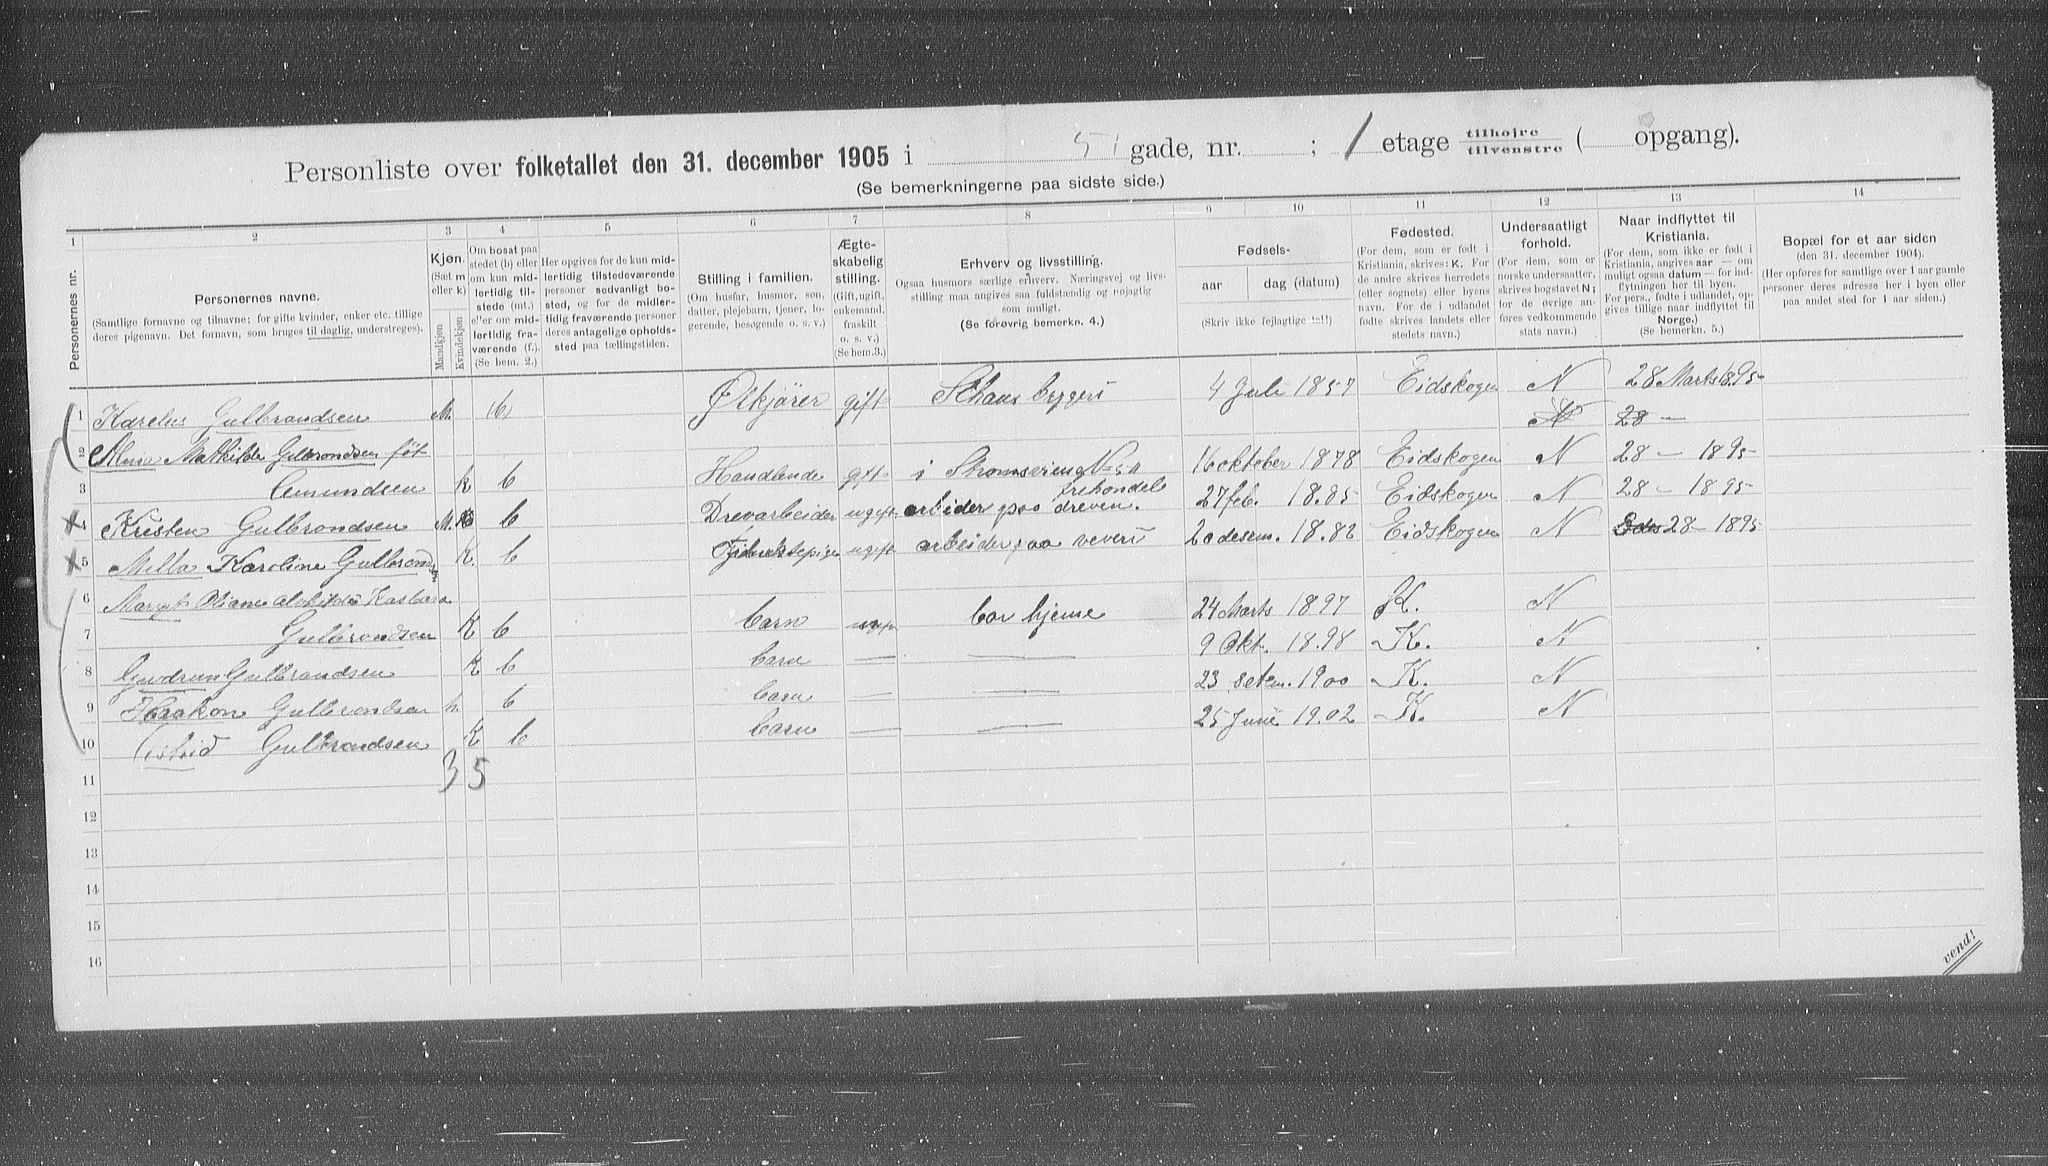 Personliste over folketallet den 31. december 1905 i 51 gade, nr. ; 1 etage tilhøjre tilvenstre ( opgang).
(Se bemerkningerne paa sidste side.)
1 2 3 4 5 6 7 8 9 10 11 12 13 14
Personernes nr.
Personernes navne.
(Samtlige fornavne og tilnavne; for gifte kvinder, enker etc. tillige deres pigenavn. Det fornavn, som bruges til daglig, understreges).
Kjøn.
(Sæt m eller k)
Mandkjøn
Kvindekjøn
Om bosat paa stedet (b) eller om kun midlertidig tilstede (mt.) eller om midlertidig fraværende (f.).
(Se bem. 2.)
Her opgives for de kun midlertidig tilstedeværende personer sedvanligt bosted, og for de midlertidig fraværende personer deres antagelige opholdssted paa tællingstiden.
Stilling i familien.
(Om husfar, husmor, søn, datter, plejebarn, tjener, logerende, besøgende o. s. v.)
Ægteskabelig stilling.
(Gift, ugift, enkemand, fraskilt o. s. v.)
(Se bem.3.)
Erhverv og livsstilling.
Ogsaa husmors særlige erhverv. Næringsvej og livsstilling maa angives saa fuldstændig og nøjagtig som muligt.
(Se forøvrig bemerkn. 4.)
Fødsels-
aar dag (datum)
(Skriv ikke fejlagtige tal!)
Fødested.
(For dem, som er født i Kristiania, skrives: K. For de andre skrives herredets (eller sognets) eller byens navn. For de i udlandet fødte skrives landets eller stedets navn.)
Undersaatligt forhold.
(For dem, som er norske undersaatter, skrives bogstavet N; for de øvrige anføres vedkommende stats navn.)
Naar indflyttet til Kristiania.
(For dem, som ikke er født i Kristiania, angives aar — om muligt ogsaa datum — for indflytningen her til byen. For pers., fødte i udlandet, opgives tillige naar indflyttet til Norge.)
(Se bemerkn. 5.)
Bopæl for et aar siden
(den 31. december 1904).
(Her opføres for samtlige over 1 aar gamle personer deres adresse her i byen eller paa andet sted for 1 aar siden.)
1 Karelus Gulbrandsen M. b Ølkjører gift 4 Juli 1857 Eidskogen N 28 Marts 1895
N 28 —
2 Mathilde Gulbrondsen føt
3 Amundsen k b Handlende gift i 16 oktober 1878 Eidskogen N 28 — 1895
4 Kristen Gulbrondsen M. b Drevarbeider ugift arbider paa dreven. 27 feb. 1885 Eidskogen N 28 — 1895
5 Milla Karoline Gulbrond K. b ugift arbeider paa veveri 20 desem. 1882 Eidskogen N 28 — 1895
6 Margit Oliane
7 Gulbrondsen K b barn ugift bor hjeme 24 Marts 1897 K. N
8 Gudrun Gulbrandsen K b barn — — 9 Okt. 1898 K. N
9 Haakon Gulbrondsen b barn — — 23 setem. 1900 K. N
10 Astrid Gulbrandsen K b barn — — 25 Juni 1902 K. N
11 3 5
12
13
14
15
16
vend!